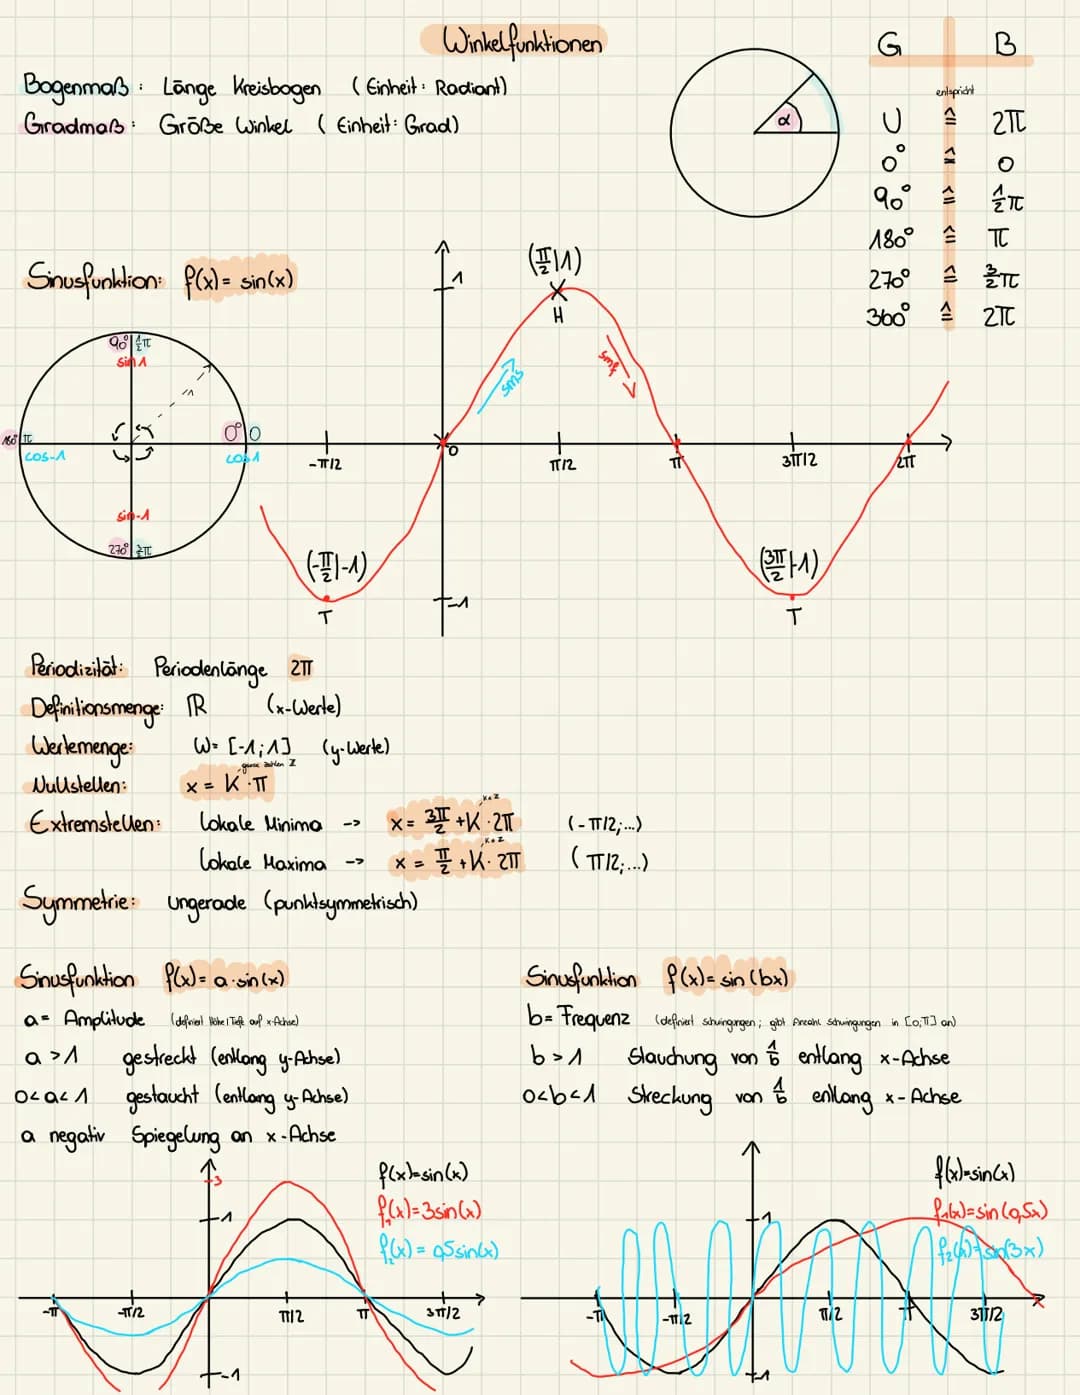 Winkelfunktionen
Bogenmaß: Länge Kreisbogen (Einheit: Radiant)
Gradmaß: Größe Winkel (Einheit: Grad)
α
G B
entspricht
U ≙ 2π
0° ≙ 0
90° ≙ 1/2 π
180° ≙ π
270° ≙ 3/2 π
360° ≙ 2π
Sinusfunktion: f(x) = sin(x)
90° 1/2 π
sin 1
1
180° π
cos -1
0° 0
cos 1
sin -1
270° 3/2 π
1
(π/2|1)
H
sms
smf
-π/2 0 π/2 π 3π/2 2π
(-π/2|-1)
T
(3π/2|-1)
T
-1
Periodizität: Periodenlänge 2π
Definitionsmenge: ℝ (x-Werte)
Wertemenge: W= [-1;1] (y-Werte)
ganze Zahlen Z
Nullstellen: x = K·π
Extremstellen: Lokale Minima -> x = 3π/2 + K·2π (-π/2;...)
K∈Z
Lokale Maxima -> x = π/2 + K·2π (π/2;...)
K∈Z
Symmetrie: ungerade (punktsymmetrisch)
Sinusfunktion f(x) = a·sin(x)
a = Amplitude (definiert Höhe/Tiefe auf x-Achse)
a > 1 gestreckt (entlang y-Achse)
0<a<1 gestaucht (entlang y-Achse)
a negativ Spiegelung an x-Achse
3
1
f(x)=sin(x)
f₁(x)=3sin(x)
f₂(x)=0,5sin(x)
-π -π/2 π/2 π 3π/2
-1
Sinusfunktion f(x) = sin(bx)
b = Frequenz (definiert Schwingungen; gibt Anzahl Schwingungen in [0;π] an)
b > 1 Stauchung von 1/b entlang x-Achse
0<b<1 Streckung von 1/b entlang x-Achse
1
f(x)=sin(x)
f₁(x)=sin(0,5x)
f₂(x)=sin(3x)
-π -π/2 π/2 π 3π/2
-1